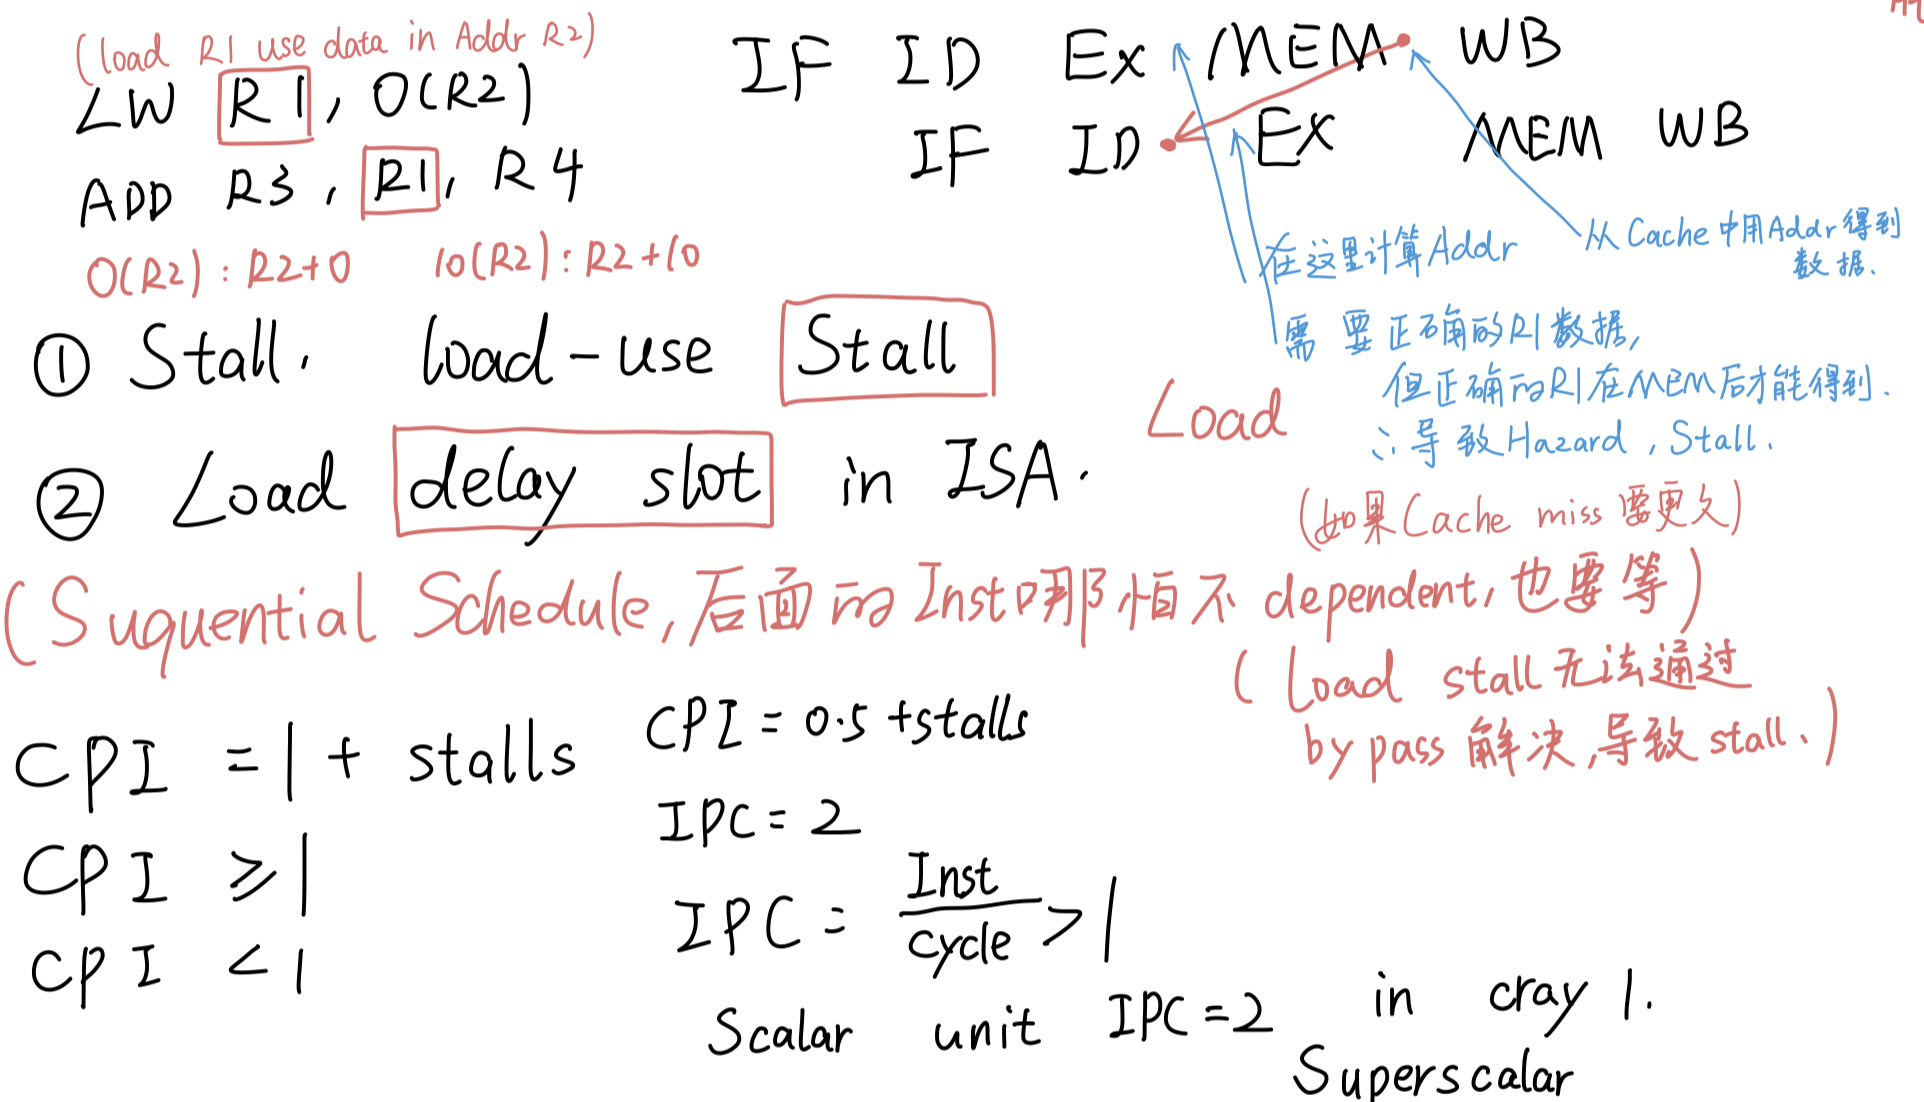 (load R1 use data in Addr R2)
LW R1, 0(R2)
ADD R3, R1, R4
0(R2): R2+0 10(R2): R2+10
IF ID Ex MEM WB
IF ID EX MEM WB
在这里计算Addr
从Cache中用Addr得到
数据.
需要正确的R1数据,
但正确的R1在MEM后才能得到.
∴导致Hazard, Stall.
① Stall. load-use Stall
Load
② Load delay slot in ISA.
(如果Cache miss 要更久)
(Suquential Schedule, 后面的Inst哪怕不dependent, 也要等)
(Load stall无法通过
bypass解决,导致stall.)
CPI = 1 + stalls
CPI ≥ 1
CPI < 1
CPI = 0.5 + stalls
IPC = 2
IPC = Inst/cycle > 1
Scalar unit IPC = 2 in cray 1.
Superscalar